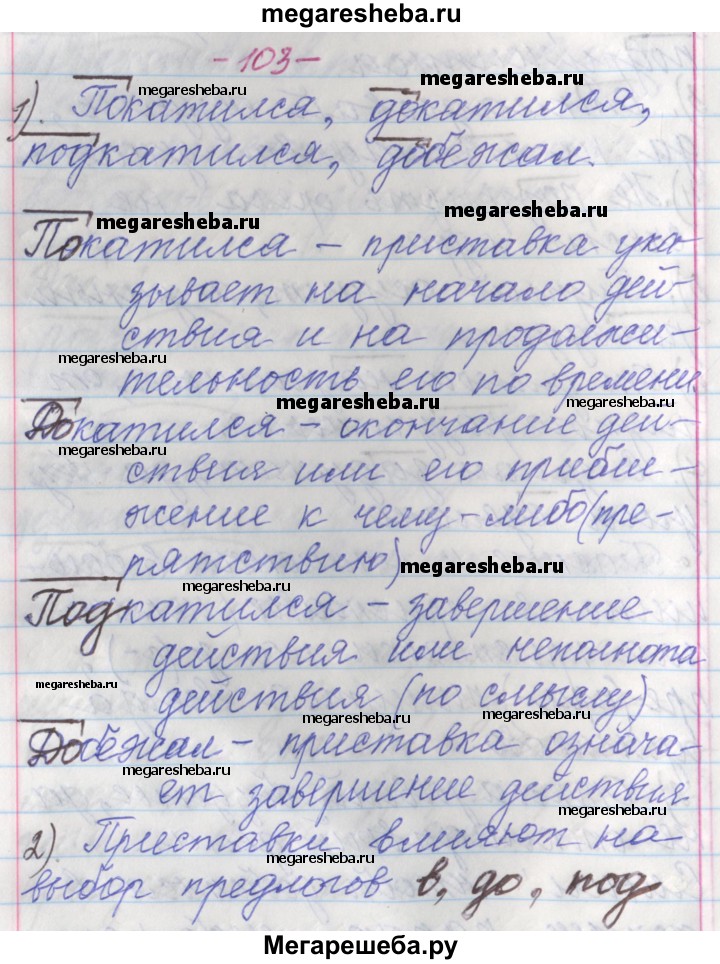 megaresheba.ru
- 103 -
megaresheba.ru
megaresheba.ru
1). Покатился, докатился,
подкатился, добежал.
megaresheba.ru
megaresheba.ru
Покатился – приставка ука-
зывает на начало дей-
ствия и на продолжи-
megaresheba.ru
тельность его по времени.
megaresheba.ru
megaresheba.ru
Докатился – окончание дей-
megaresheba.ru
ствия или его прибли-
жение к чему-либо (пре-
пятствию)
megaresheba.ru
megaresheba.ru
Подкатился – завершение
действия или неполнота
megaresheba.ru
действия (по смыслу)
megaresheba.ru
megaresheba.ru
Добежал – приставка означа-
megaresheba.ru
ет завершение действия
megaresheba.ru
2). Приставки влияют на
megaresheba.ru
выбор предлогов в, до, под
Мегарешеба.ру